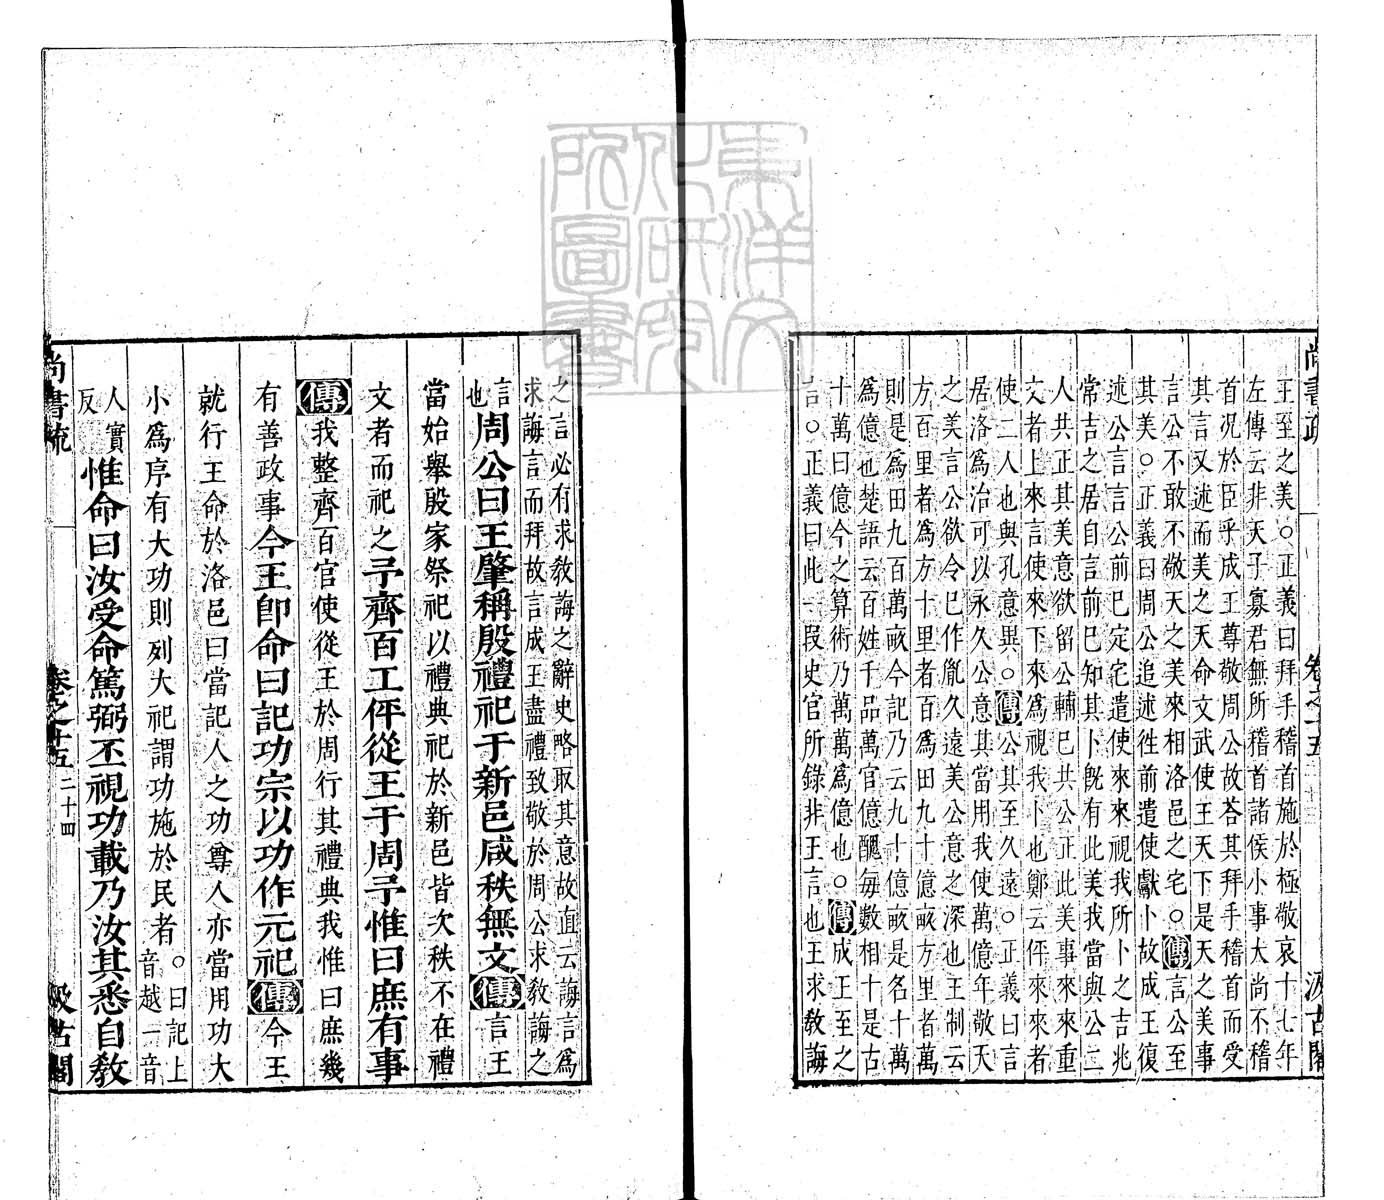 尚書疏 卷之十五 二十三 汲古閣
王至之美○正義曰拜手稽首施於極敬哀十七年
左傳云非天子寡君無所稽首諸侯小事大尚不稽
首况於臣乎成王尊敬周公故荅其拜手稽首而受
其言又述而美之天命文武使王天下是天之美事
言公不敢不敬天之美來相洛邑之宅○傳言公至
其美○正義曰周公追述徃前遣使獻卜故成王復
述公言言公前已定宅遣使來來視我所卜之吉兆
常吉之居自言前已知其卜旣有此美我當與公二
人共正其美意欲留公輔巳共公正此美事來來重
文者上來言使來下來爲視我卜也鄭云伻來來者
使二人也與孔意異○傳公其至久遠○正義曰言
居洛爲治可以永久公意其當用我使萬億年敬天
之美言公欲令巳作胤久遠美公意之深也王制云
方百里者爲方十里者百爲田九十億畝方里者萬
則是爲田九百萬畝今記乃云九十億畝是名十萬
爲億也楚語云百姓千品萬官億醜每數相十是古
十萬曰億今之算術乃萬萬爲億也○傳成王至之
言○正義曰此一段史官所錄非王言也王求教誨
之言必有求教誨之辭史略取其意故直云誨言爲
求誨言而拜故言成王盡禮致敬於周公求教誨之
言也周公曰王肇稱殷禮祀于新邑咸秩無文傳言王
當始舉殷家祭祀以禮典祀於新邑皆次秩不在禮
文者而祀之予齊百工伻從王于周予惟曰庶有事
傳我整齊百官使從王於周行其禮典我惟曰庶幾
有善政事今王卽命曰記功宗以功作元祀傳今王
就行王命於洛邑曰當記人之功尊人亦當用功大
小爲序有大功則列大祀謂功施於民者○曰記上音越一音
人實反惟命曰汝受命篤弼丕視功載乃汝其悉自教
尚書疏 卷之十五 二十四 汲古閣
東洋文化研究所圖書